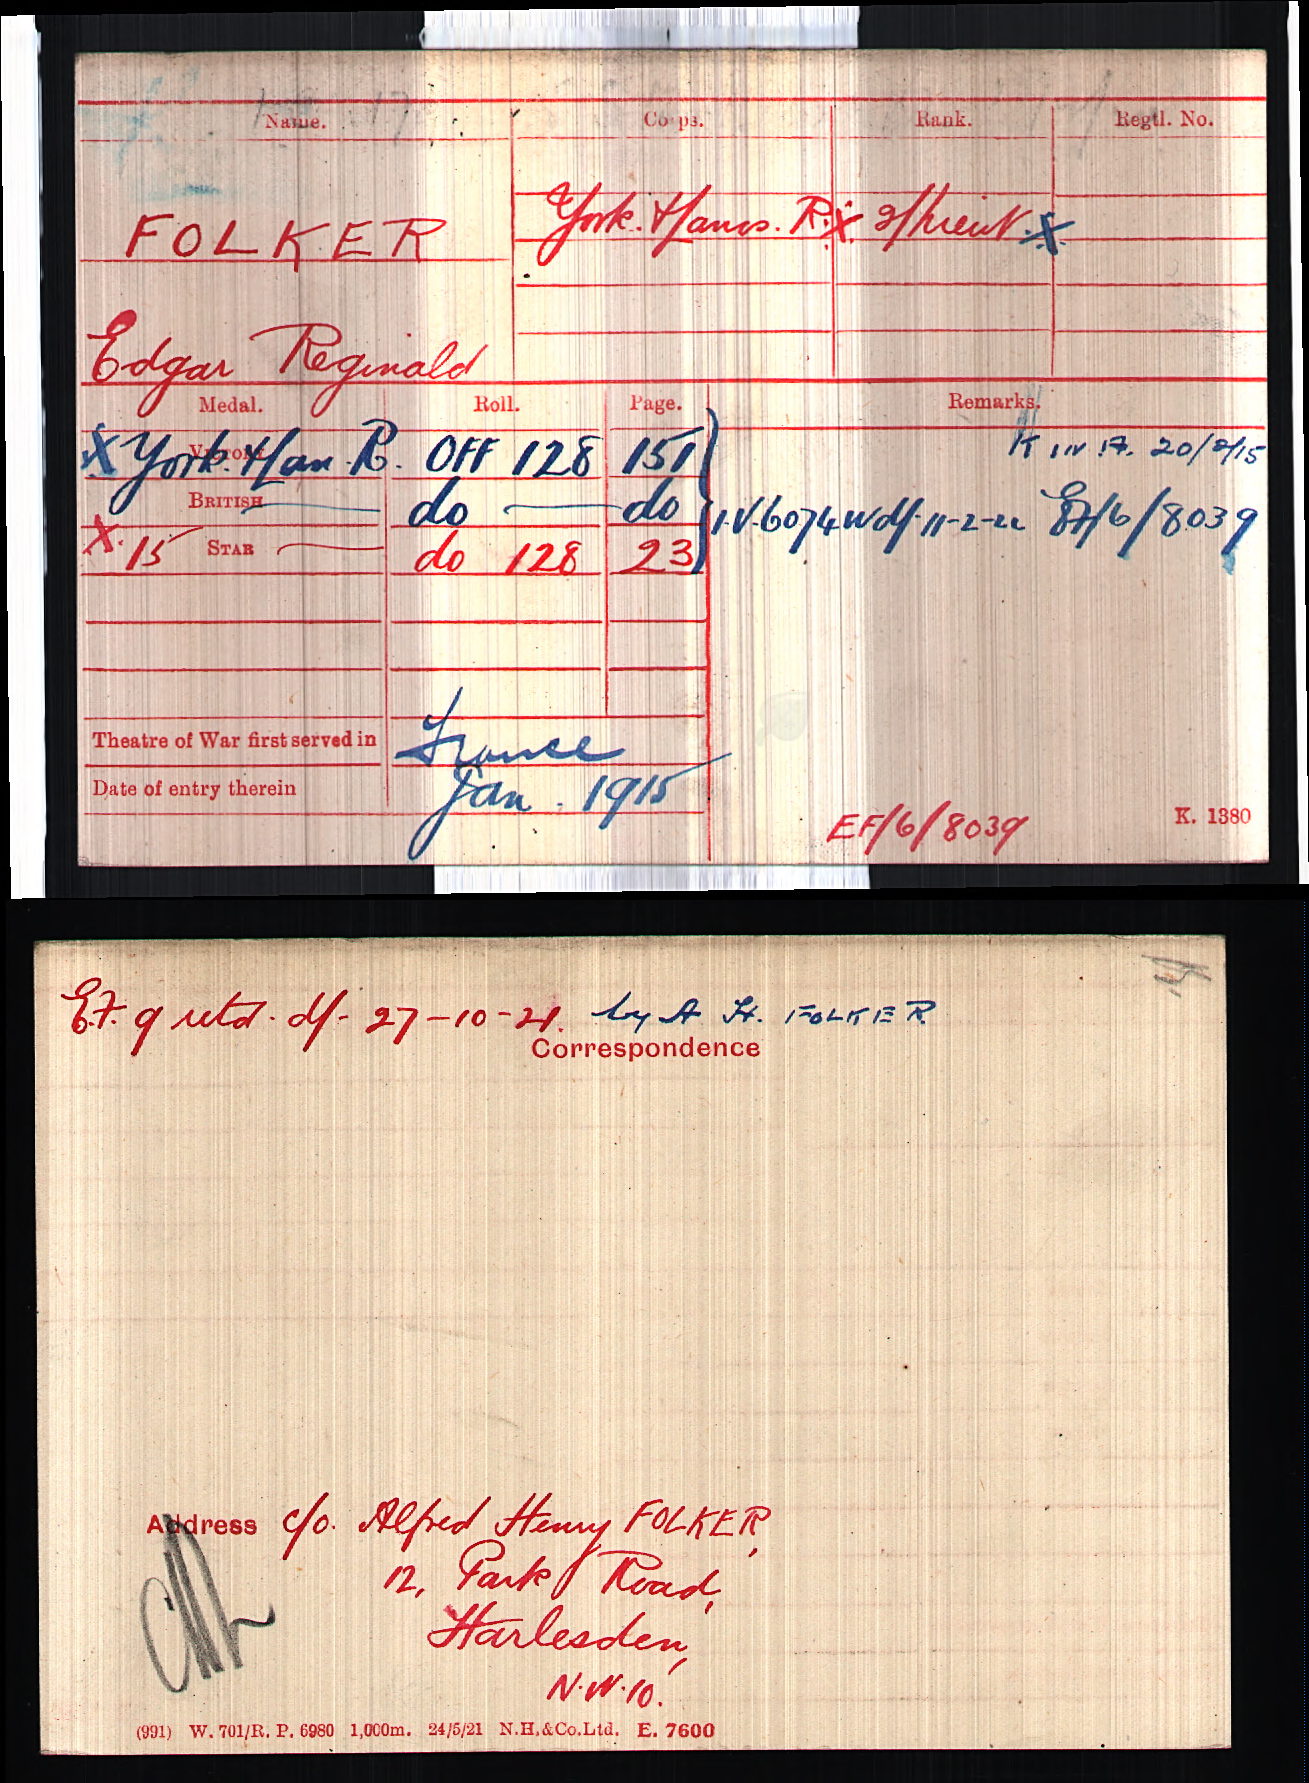 Name. Corps. Rank. Regtl. No.
FOLKER York. & Lancs. R. X 2/Lieut. X
Edgar Reginald
Medal. Roll. Page. Remarks.
X Victory York. & Lan. R. OFF 128 151 K in A. 20/2/15
British do do I.V. 6074 W df 11-2-22 EF/6/8039
X 15 Star do 128 23
Theatre of War first served in France
Date of entry therein Jan. 1915
EF/6/8039 K. 1380
E.F. 9 retd. df. 27-10-21. by A. H. FOLKER
Correspondence
Address c/o. Alfred Henry FOLKER,
12, Park Road,
Harlesden,
N.W.10.
(991) W. 701/R. P. 6980 1,000m. 24/5/21 N.H.&Co.Ltd. E. 7600